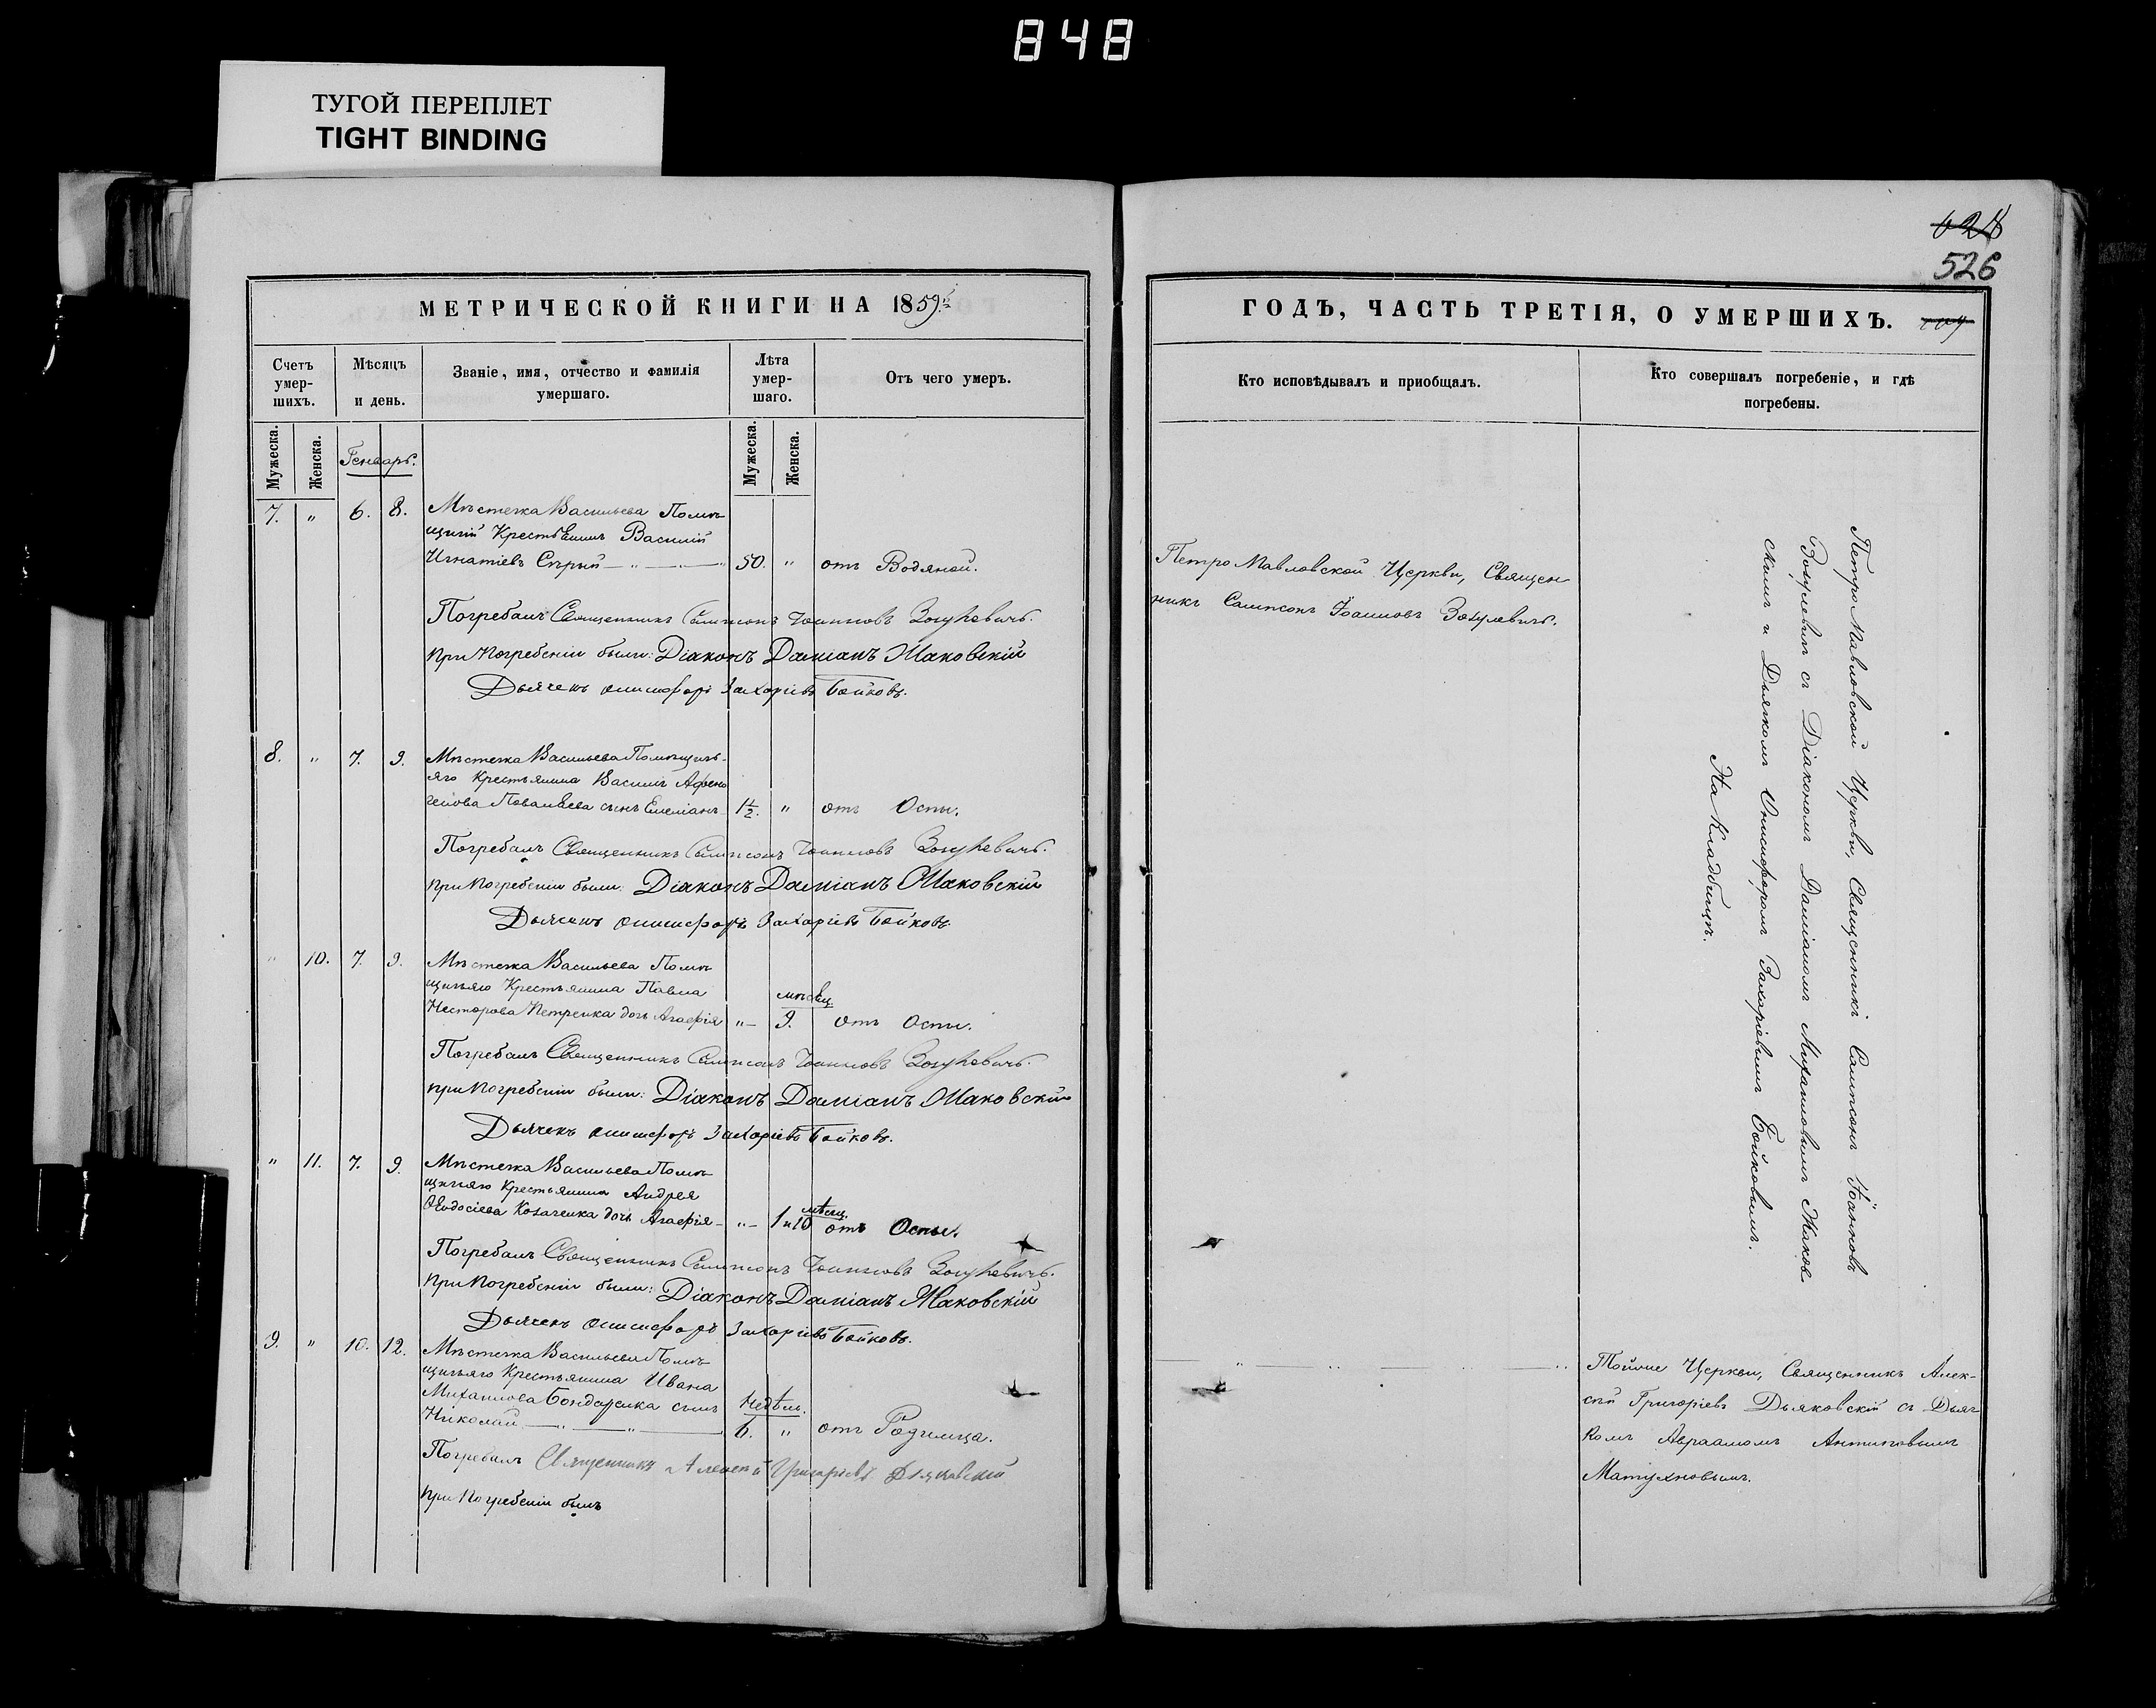 848
ТУГОЙ ПЕРЕПЛЕТ
TIGHT BINDING
МЕТРИЧЕСКОЙ КНИГИ НА 1859.
Счетъ умер-шихъ.
Мѣсяцъ и день.
Званіе, имя, отчество и фамилія умершаго.
Лѣта умер-шаго.
Отъ чего умеръ.
Мужеска.
Женска.
Генварь.
Мужеска.
Женска.
7. " 6. 8. Мѣстечка Васильева Помѣ-
щичій Крестьянинъ Василій
Игнатіевъ Сѣрый 50. " отъ Водяной.
Погребалъ Священникъ Сампсонъ Іоанновъ Зосулевичъ.
При Погребеніи были: Діаконъ Даміанъ Жаковскій
Дьячекъ Онисифоръ Захаріевъ Бойковъ.
8. " 7. 9. Мѣстечка Васильева Помѣщичь-
яго Крестьянина Василія Афено
генова сынъ Емеліанъ 1½. " отъ Оспы.
Погребалъ Священникъ Сампсонъ Іоанновъ Зосулевичъ.
При Погребеніи были: Діаконъ Даміанъ Жаковскій
Дьячекъ Онисифоръ Захаріевъ Бойковъ.
" 10. 7. 9. Мѣстечка Васильева Помѣ-
щичьяго Крестьянина Павла
мѣсяц.
Несторова Петренка дочь Агафія " 9. отъ Оспы.
Погребалъ Священникъ Сампсонъ Іоанновъ Зосулевичъ.
При Погребеніи были: Діаконъ Даміанъ Жаковскій
Дьячекъ Онисифоръ Захаріевъ Бойковъ.
" 11. 7. 9. Мѣстечка Васильева Помѣ-
щичьяго Крестьянина Андрея
мѣсяц.
Ѳеодосіева Козаченка дочь Агафія " 1 и 10 отъ Оспы.
Погребалъ Священникъ Сампсонъ Іоанновъ Зосулевичъ.
При Погребеніи были: Діаконъ Даміанъ Жаковскій
Дьячекъ Онисифоръ Захаріевъ Бойковъ.
9. " 10. 12. Мѣстечка Васильева Помѣ-
щичьяго Крестьянина Ивана
Михаилова Бондаренка сынъ Недѣль.
Николай 6. " отъ Родимца.
Погребалъ Священникъ Алексей Григоріевъ Дьяковскій
При Погребеніи былъ
526
ГОДЪ, ЧАСТЬ ТРЕТІЯ, О УМЕРШИХЪ.
Кто исповѣдывалъ и пріобщалъ.
Кто совершалъ погребеніе, и гдѣ погребены.
Петро Павловской Церкви, Священ-
никъ Сампсонъ Іоанновъ Зосулевичъ.
Петро Павловской Церкви, Священникъ Сампсонъ Іоанновъ
Зосулевичъ съ Діакономъ Даміаномъ Михаиловымъ Жаков-
скимъ и Дьячкомъ Онисифоромъ Захаріевымъ Бойковымъ.
На Кладбищѣ.
Тойже Церкви, Священникъ Алек-
сій Григоріевъ Дьяковскій съ Дьяч-
комъ Авраамомъ Антиповымъ
Матухновымъ.